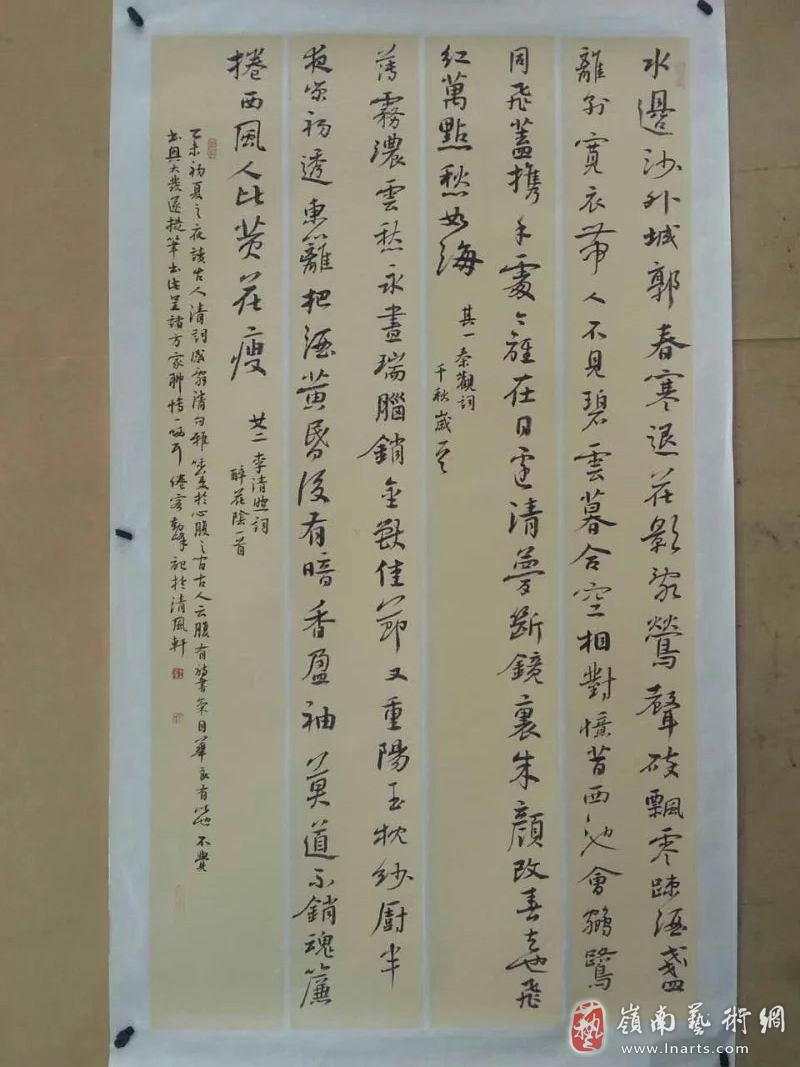 水邊沙外城郭春寒退花影亂鶯聲碎飄零疎酒盞
離別寬衣帶人不見碧雲暮合空相對憶昔西池會鵷鷺
同飛蓋攜手處今誰在日邊清夢斷鏡裏朱顏改春去也飛
紅萬點愁如海
其一秦觀詞
千秋歲
薄霧濃雲愁永晝瑞腦銷金獸佳節又重陽玉枕紗廚半
夜涼初透東籬把酒黃昏後有暗香盈袖莫道不銷魂簾
捲西風人比黃花瘦
其二李清照詞
醉花陰一首
乙未初夏之夜讀古人清詞感 清句雅 於心腹之 古人云腹有詩書氣自華良有以也不覺
書興大發遂提筆書此呈諸方家聊博一哂耳 記於清風軒
嶺南藝術網
www.lnarts.com